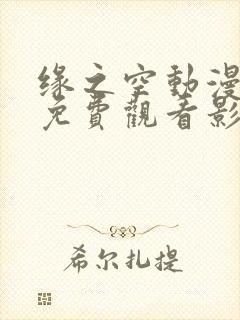 缘之空動漫
免費觀看影
希尔扎提